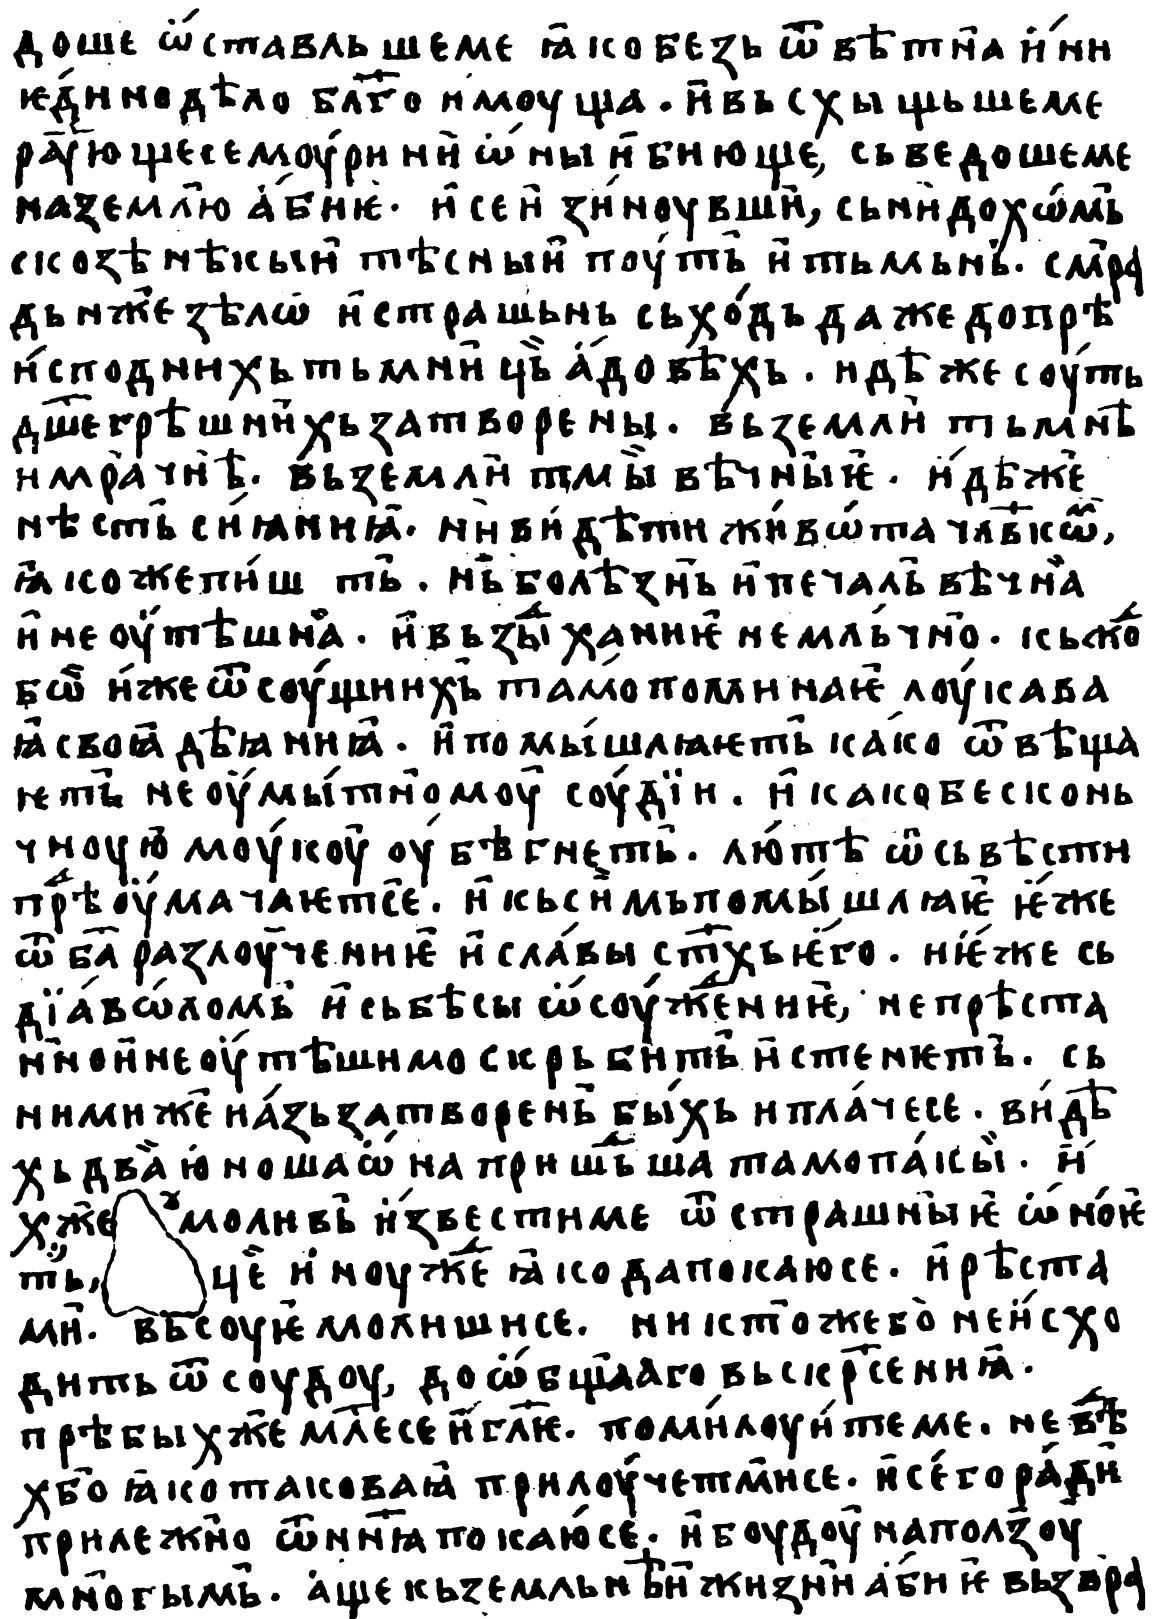 доше ѡ҆́ставльшеме ꙗ҆ко безь ѿвѣтна и҆ ни
ѥди́но дѣло бл҃го имоуща. и҆ вьсхыщьшеме
ра́ґающе се моурини и҆ ѡ҆́ны и҆ бию҆ще, сьведошеме
на землю҆ а҆́биѥ. и҆ сеи зи́ноувши, сьнидохѡ́мь
скозѣ нѣкыи тѣсныи поу́ть и҆ тьмьнь. смра
дьнже зѣлѡ и҆ страшьнь сьхо́дь даже до прѣ
и҆споднихь тьмницъ а҆́довѣхь. идѣже соу́ть
дш҃е грѣшних затворены. вь земли тьмнѣ
и мрачнѣ. вь земли тмы вѣчныѥ. и҆дѣже
нѣсть си́ꙗниꙗ. ни ви́дѣти жи́вѡта чл҃вкѡ,
ꙗ҆коже пи́ш ть. нь болѣзнь и҆ печаль вѣчна
и҆ не оу҆тѣшна. и҆ вьзды҆ханиѥ немльчно. кьждо
бѡ и҆же ѿ соу́щихь та́мо поминаѥ лоу́каваꙗ
ꙗ҆ своꙗ дѣꙗниꙗ. и҆ помы́шлꙗѥть ка́ко ѿвѣща
ѥть не оу҆мы́тномоу соу́дїи. и҆ како бесконь
чноую моу́коу оу҆бѣгнеть. лю́тѣ ѿ сьвѣсти
прѣоу҆мачаѥтсе. и҆ кь симь помы́шлꙗѥ ѥ҆же
ѿ ба҃ разлоучениѥ и҆ сла́вы ст҃хъ ѥ҆го. ниѥ́же сь
дїа́вѡ́ломь и҆ сь бѣсы ѡ҆соу́ждениѥ, непрѣста
нно и҆ не оу҆тѣшимо скрьбить и҆ стенѥть. сь
нимиже на́зь затворень бы́хь и пла́чесе. ви́дѣ
хь два ю҆ноша ѡ҆́на пришьдша тамо па́кы. и҆́
хже оумоливь и҆звестиме ѿ страшныѥ ѡ҆́ноѥ
ть, це и҆ ноужде ꙗ҆ко да покаюсе. и҆ рѣста
ми. вьсоуѥ молишисе. никтоже бо не и҆схо
дить ѿ соудоу, до ѡ҆́бщааго вьскрсениꙗ.
прѣбых же мл҃есе и҆ гл҃ѥ. поми́лоуи́теме. не вѣдѣ
х бо ꙗ҆ко таковаꙗ прилоу́четмисе. и҆ се́го ра́ди
прилежно ѿ нн҃ꙗ покаю́се. и҆ боудоу на ползоу
многымь. а҆ще кь земльнѣи жизни а҆́биѥ вьзвра